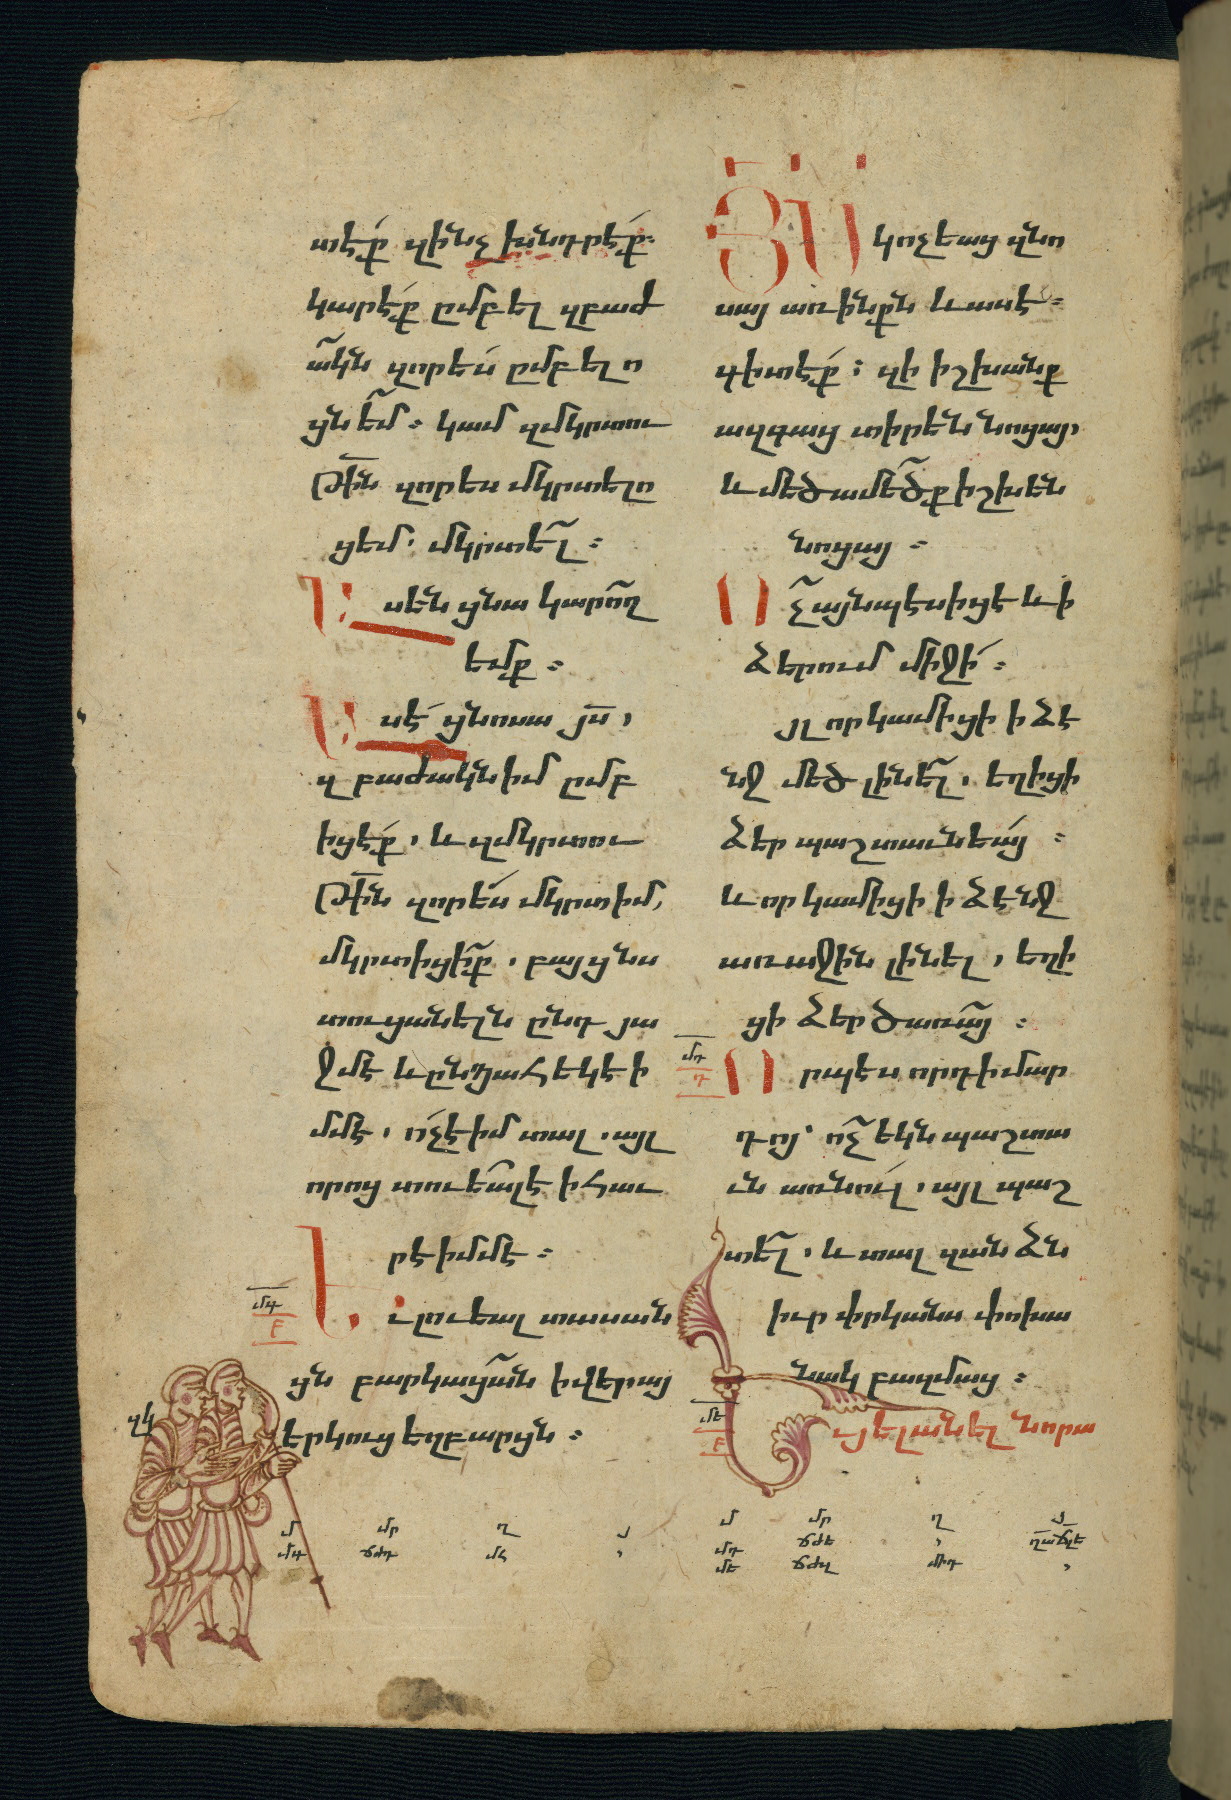 տէք զինչ խնդրէք.
կարէք ըմբել զբաժ
ակն զորես ըմբելո
ցն եմ։ կամ զմկրտու
թին զորես մկրտելո
ցեմ. մկրտել։
Ասեն ցնա կարող
եմք։
Ասէ ցնոսա յս,
զբաժակն իմ ըմբ
իցէք, և զմկրտու
թին զորես մկրտիմ,
մկրտիցիք, բայց նս
տուցանելն ընդ յա
ջմէ և ընդահեկէ ի
մմէ, ոչ է իմ տալ, այլ
որոց տուեալէ ի հաւ
րէ իմմէ։
մգ
բ
Եւ լուեալ տասան
ցն բարկացան ի վերայ
զկ
երկուց եղբարցն։
ՅՍ կոչեաց զնո
սայ առինքն և ասէ։
գիտէք։ զի իշխանք
ազգաց տիրեն նոցայ,
և մեծամեծք իշխեն
նոցայ։
Ոչ այնպէս իցէ և ի
ձերում միջի։
յլ որ կամիցի ի ձէ
նջ մեծ լինել, եղիցի
ձեր պաշտաւնեայ։
և որ կամիցի ի ձէնջ
առաջին լինել, եղի
ցի ձեր ծառայ։
մդ
դ
Որպէս որդի մար
դոյ՝ ոչ եկն պաշտա
ւն առնուլ, այլ պաշ
տել, և տալ զանձն
իւր փրկանս փոխա
նակ բազմաց։
մե
բ
Եւ յելանել նորա
մ մր ղ յ
մգ ճժդ մհ
մ մր ղ յ
մդ ճժե
մե ճժզ